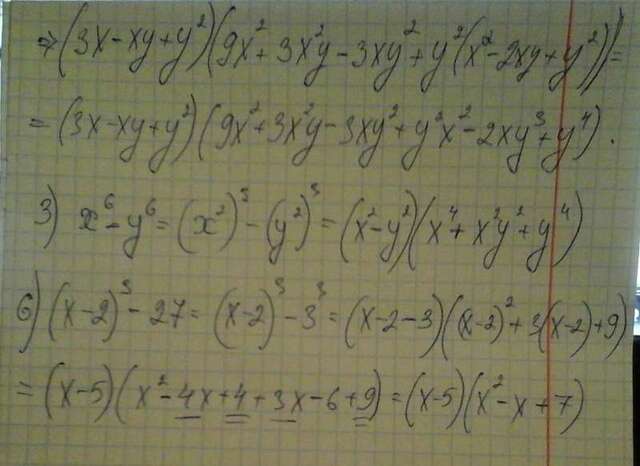 ⇒(3x-xy+y²)(9x²+3x²y-3xy²+y²(x²-2xy+y²))=
=(3x-xy+y²)(9x²+3x²y-3xy²+y²x²-2xy³+y⁴).
3) x⁶-y⁶=(x²)³-(y²)³=(x²-y²)(x⁴+x²y²+y⁴)
6) (x-2)³-27=(x-2)³-3³=(x-2-3)((x-2)²+3(x-2)+9)
=(x-5)(x²-4x+4+3x-6+9)=(x-5)(x²-x+7)